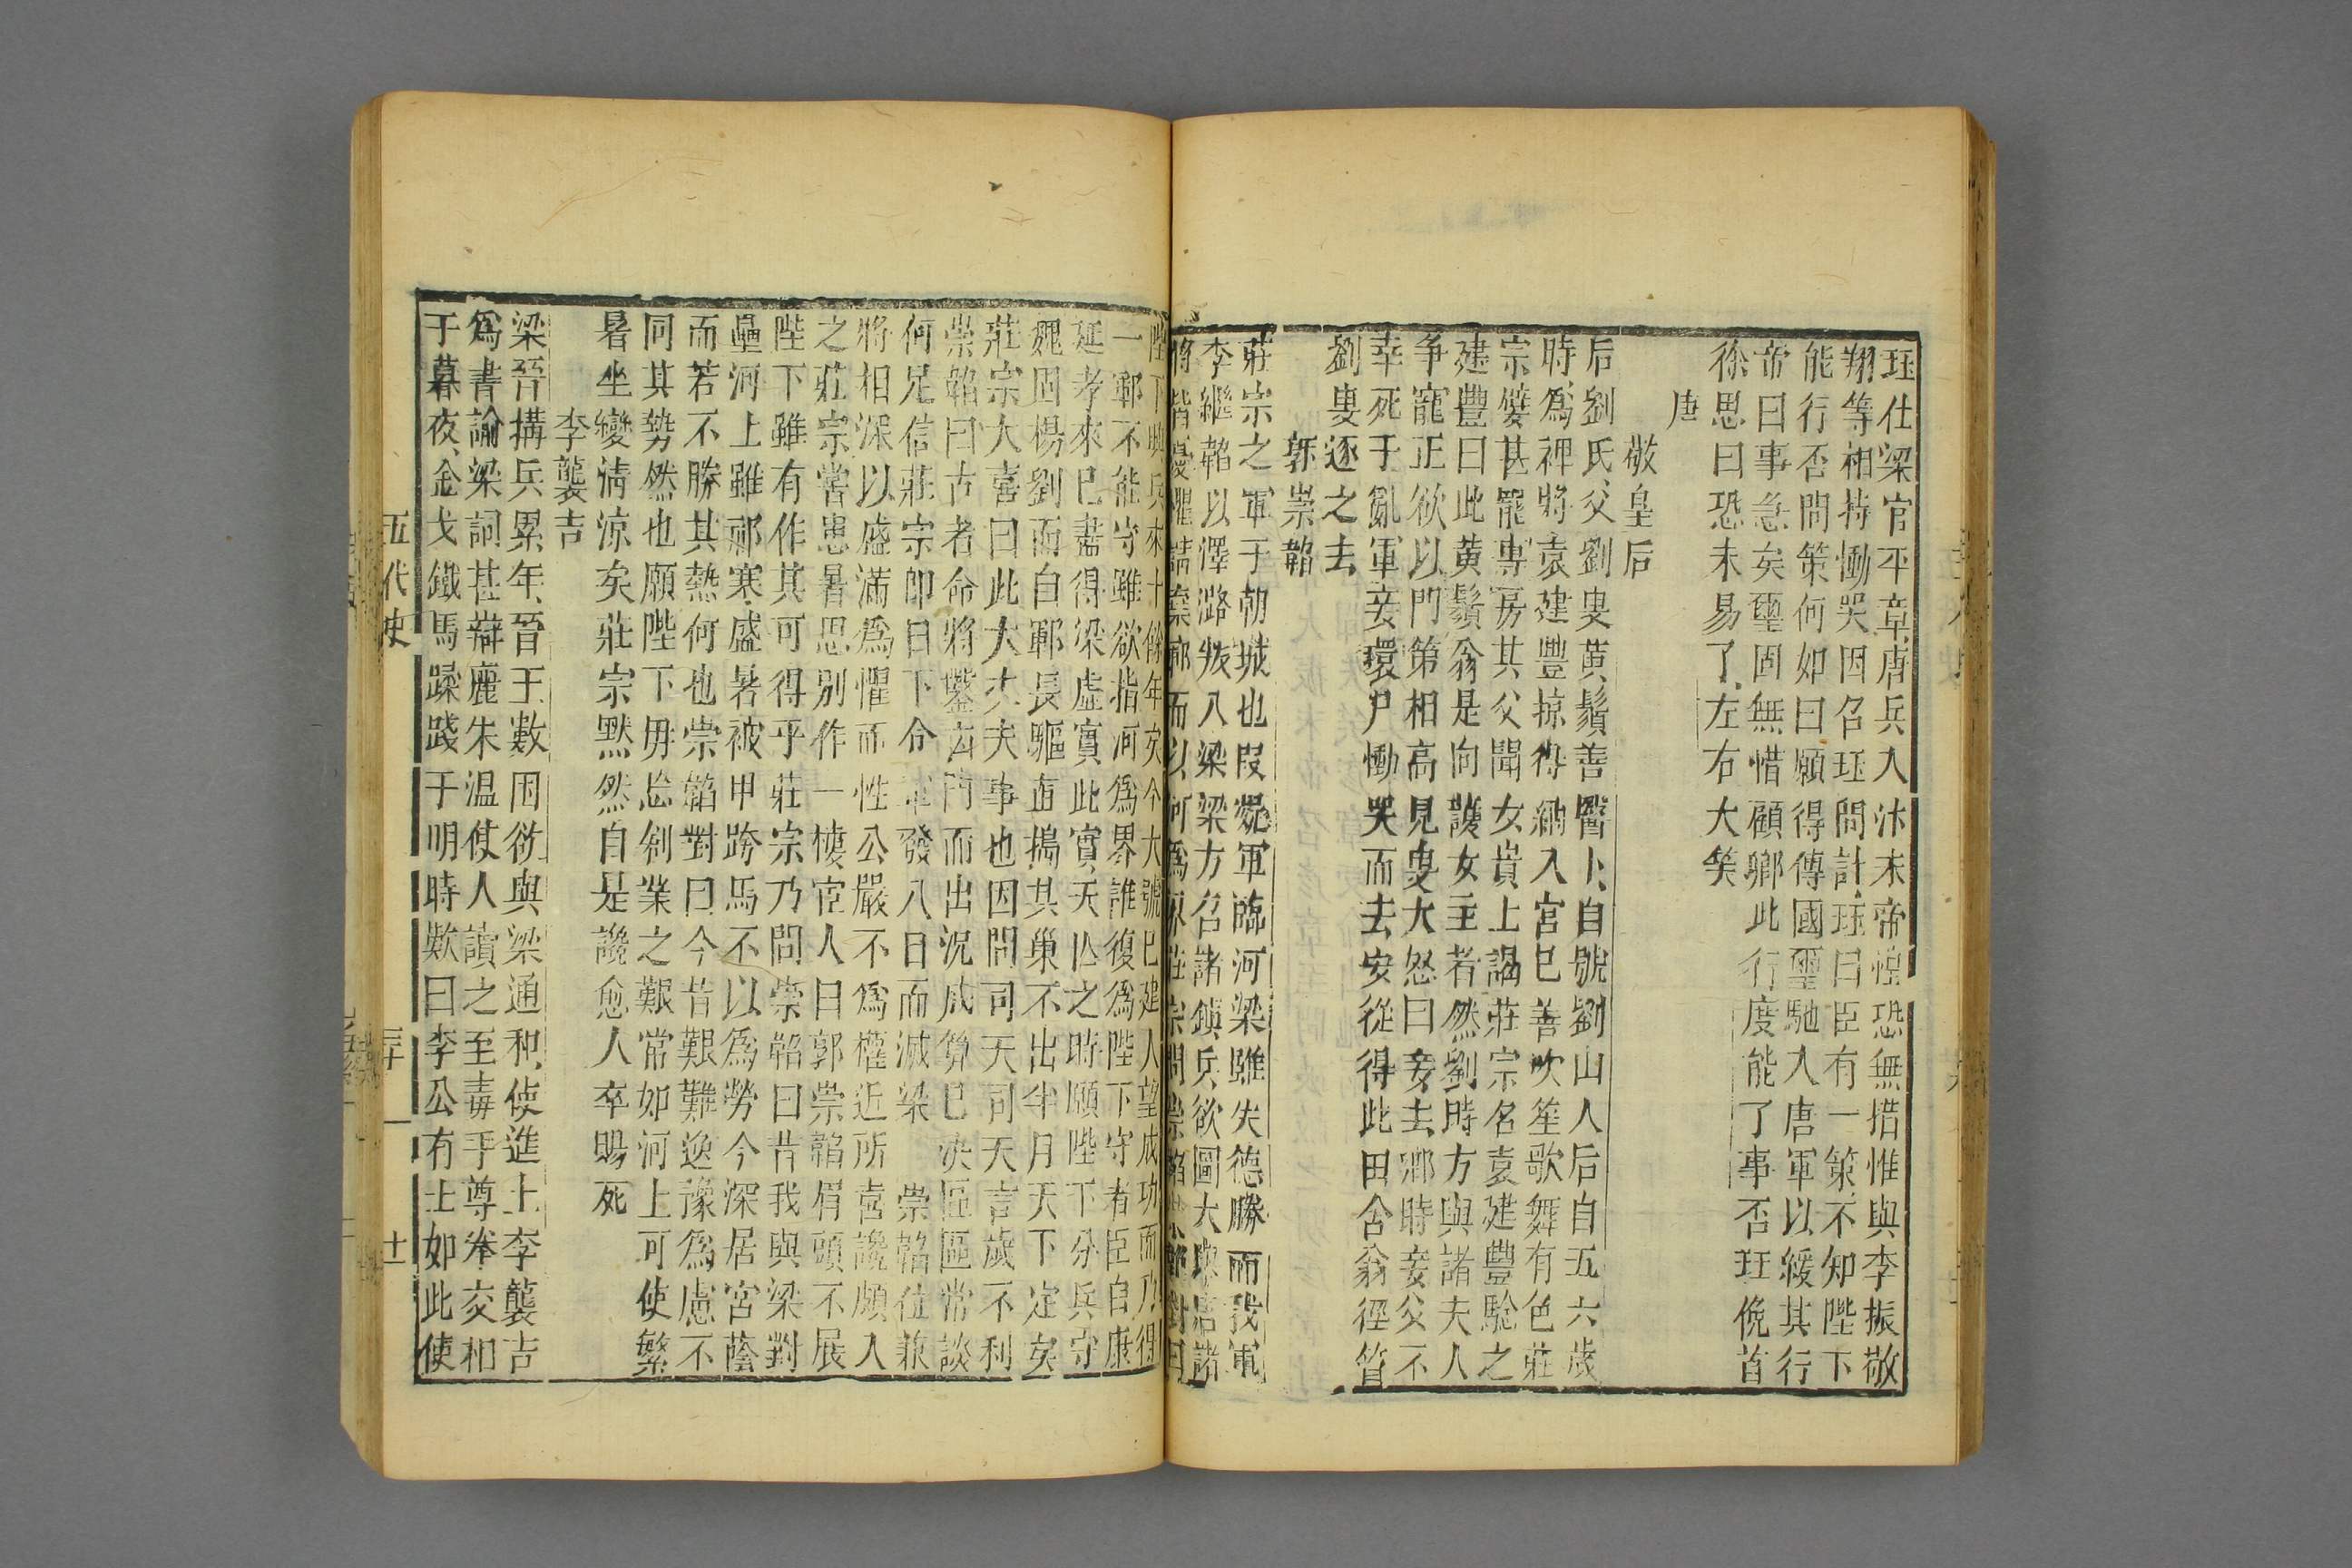 珏仕梁官平章唐兵入汴末帝惶恐無措惟與李振敬
翔等相持慟哭因召珏問計珏曰臣有一策不知陛下
能行否問策何如曰願得傳國璽馳入唐軍以緩其行
帝曰事急矣璽固無惜顧鄉此行度能了事否珏俛首
徐思曰恐未易了左右大笑
唐
敬皇后
后劉氏父劉叟黃鬚善醫卜自號劉山人后自五六歲
時爲裨將袁建豐掠得納入宮巳善吹笙歌舞有色莊
宗嬖甚寵專房其父聞女貴上謁莊宗名袁建豐騐之
建豐曰此黃鬚翁是向護女主者然劉時方與諸夫人
爭寵正欲以門第相高見叟大怒曰妾去鄉時妾父不
幸死于亂軍妾環尸慟哭而去安從得此田舍翁徑笞
劉叟逐之去
郭崇韜
莊宗之軍于朝城也段凝軍臨河梁雖失德勝而我軍
李繼韜以澤潞叛入梁梁方召諸鎮兵欲圖大舉唐諸
將皆憂懼請棄鄆而以河爲界莊宗問崇韜崇韜對曰
陛下興兵來十餘年矣今大號巳建人望成功而乃得
一鄆不能守雖欲指河爲界誰復爲陛下守者臣自康
延孝來巳盡得梁虛實此實天亾之時願陛下分兵守
魏固楊劉而自鄆長驅直搗其巢不出半月天下定矣
莊宗大喜曰此大丈夫事也因問司天司天言歲不利
崇韜曰古者命將鑿凶門而出況成算巳決區區常談
何足信莊宗卽日下令軍發八日而滅梁 崇韜位兼
將相深以盛滿爲懼而性公嚴不爲權近所喜讒頗入
之莊宗嘗患暑思別作一樓宦人曰郭崇韜眉頭不展
陛下雖有作其可得乎莊宗乃問崇韜曰昔我與梁對
壘河上雖祁寒盛暑被甲跨馬不以爲勞今深居宮蔭
而若不勝其熱何也崇韜對曰今昔艱難逸豫爲慮不
同其勢然也願陛下毋忘創業之艱常如河上可使繁
暑坐變淸涼矣莊宗默然自是讒愈人卒賜死
李襲吉
梁晉搆兵累年晉王數困欲與梁通和使進士李襲吉
爲書諭梁詞甚辯麗朱温使人讀之至毒手尊拳交相
于暮夜金戈鐵馬蹂踐于明時歎曰李公有士如此使
五代史
二十一
十一